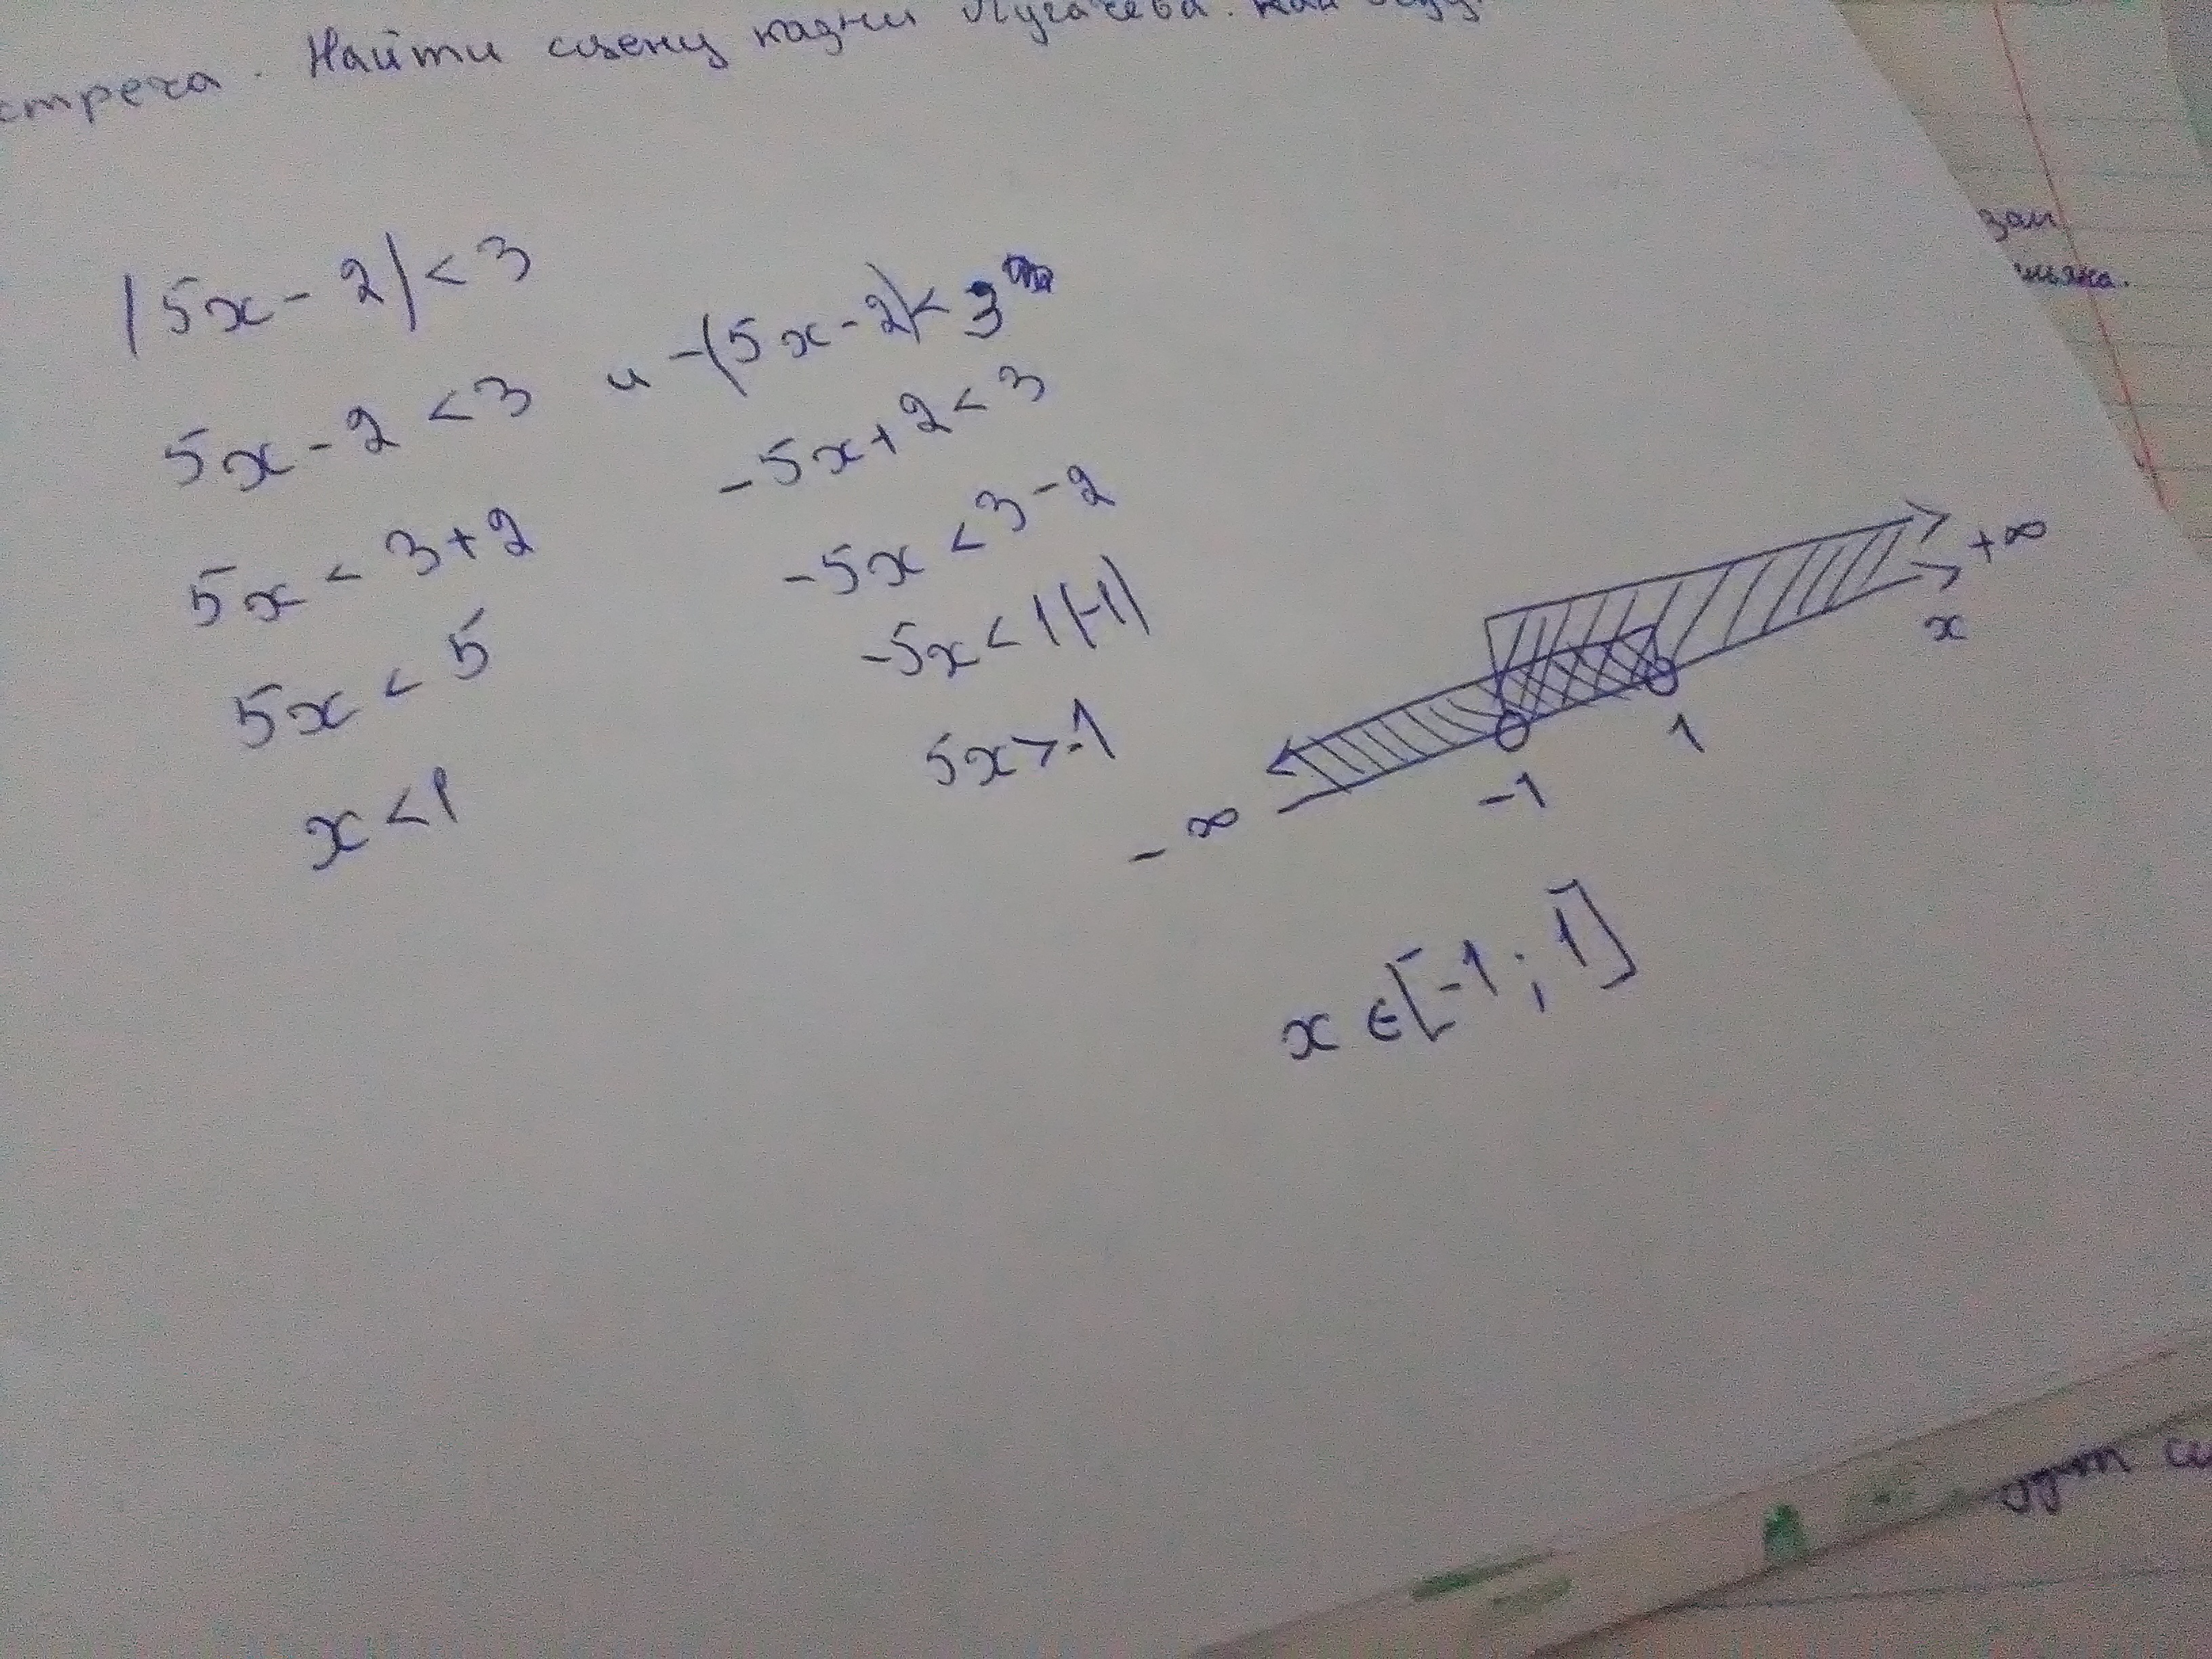 Найти сцену казни Пугачева. Как
стреча.
|5x - 2| < 3
5x - 2 < 3 и -(5x - 2) < 3
5x < 3 + 2 -5x + 2 < 3
5x < 5 -5x < 3 - 2
x < 1 -5x < 1 (-1)
5x > -1
-∞ -1 1 x +∞
x ∈ [-1; 1]
зам